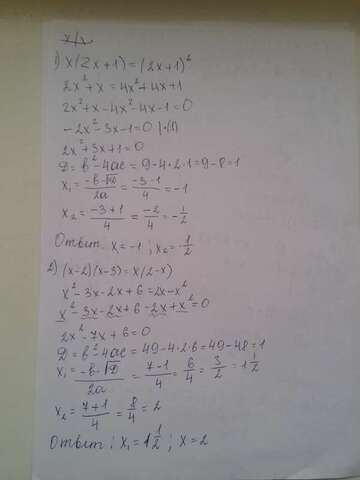 х/х
1) x(2x+1)=(2x+1)²
2x²+x=4x²+4x+1
2x²+x-4x²-4x-1=0
-2x²-3x-1=0 |·(-1)
2x²+3x+1=0
D=b²-4ac=9-4·2·1=9-8=1
x₁=(-b-√D)/2a=(-3-1)/4=-1
x₂=(-3+1)/4=-2/4=-1/2
Ответ: x₁=-1; x₂=-1/2
2) (x-2)(x-3)=x(2-x)
x²-3x-2x+6=2x-x²
x²-3x-2x+6-2x+x²=0
2x²-7x+6=0
D=b²-4ac=49-4·2·6=49-48=1
x₁=(-b-√D)/2a=(7-1)/4=6/4=3/2=1 1/2
x₂=(7+1)/4=8/4=2
Ответ: x₁=1 1/2; x=2